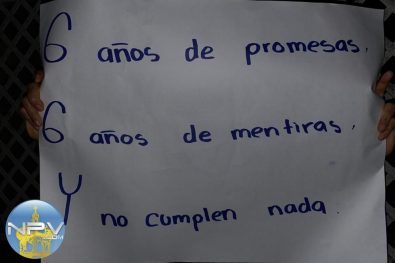 6 años de promesas.
6 años de mentiras.
Y no cumplen nada.
NPV
.COM